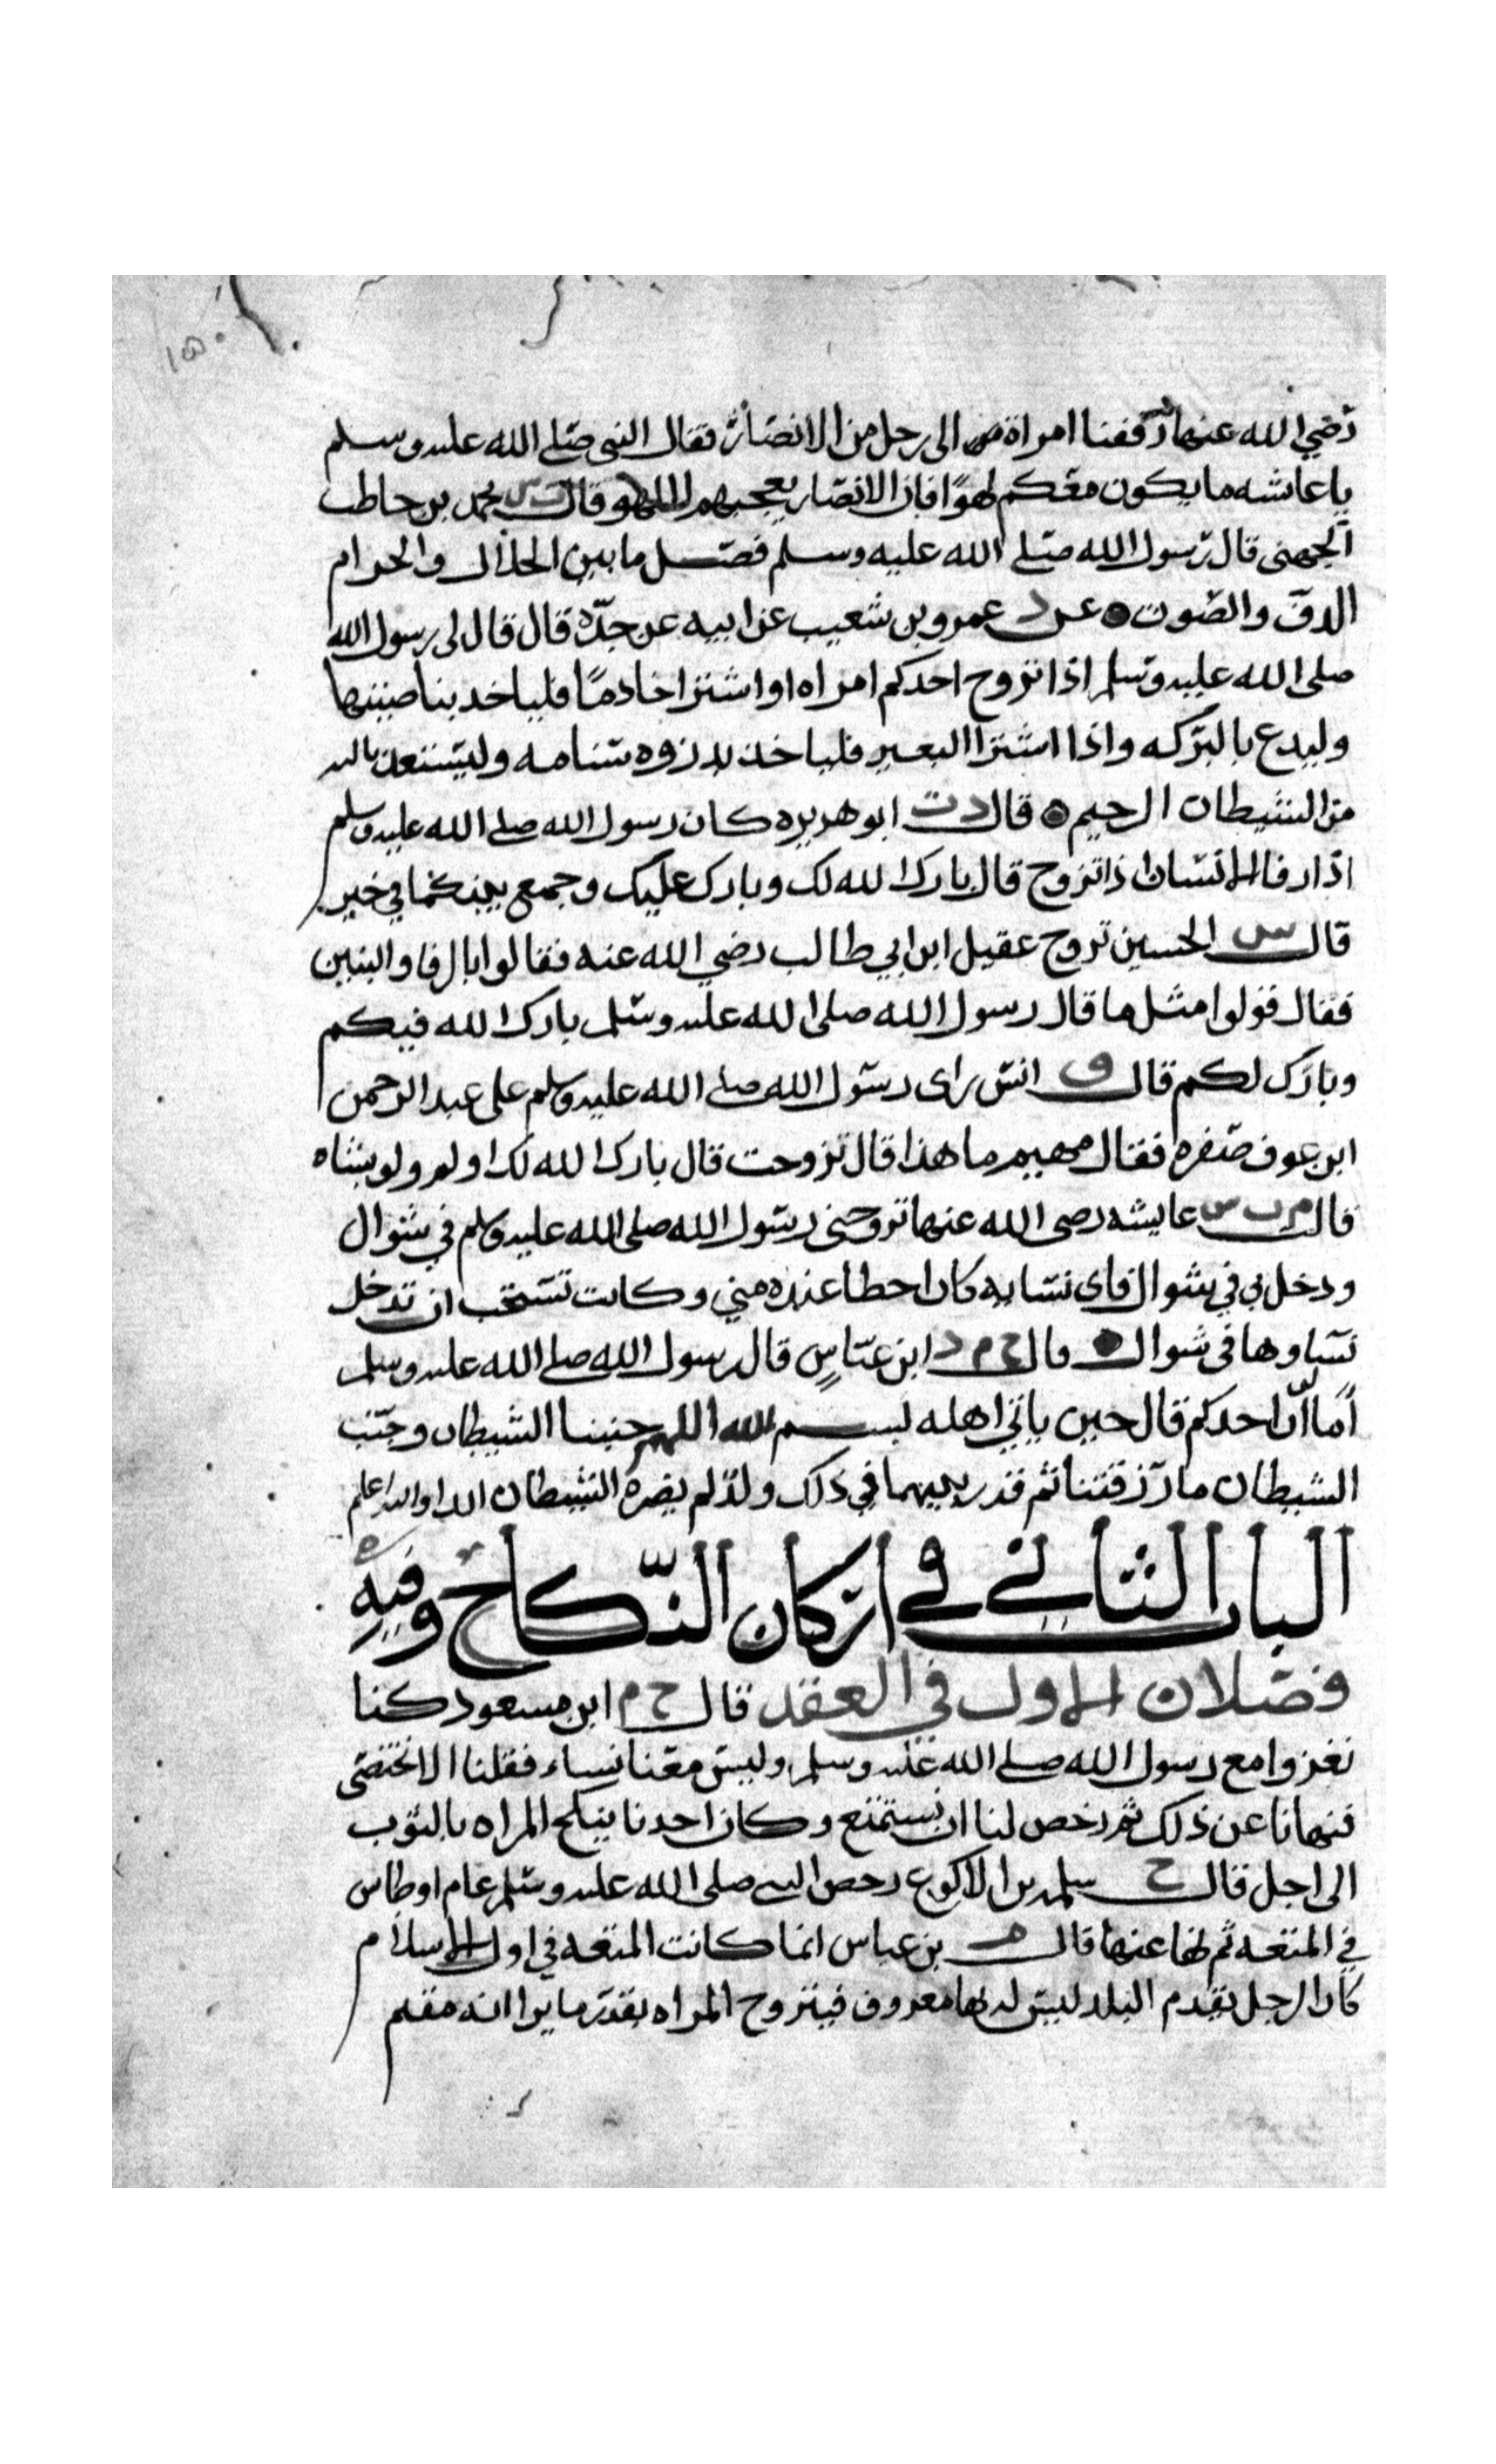 ١٥٠
رضي الله عنها زففنا امراة الى رجل من الانصار فقال النبي صلى الله عليه وسلم
يا عايشه ما يكون معكم لهوًا فان الانصار يعجبهم اللهو قال ت س محمد بن حاطب
الجمحى قال رسول الله صلى الله عليه وسلم فصل ما بين الحلال والحرام
الدف والصوت عن د عمرو بن شعيب عن ابيه عن جدّه قال قال لى رسول الله
صلى الله عليه وسلم اذا تزوج احدكم امراه او اشترا خادمًا فلياخذ بناصيتها
وليدع بالبركه واذا اشترا البعير فلياخذ بذروه سنامه وليستعذ بالله
من الشيطان الرجيم قال د ت ابو هريره كان رسول الله صلى الله عليه وسلم
اذا رفا الانسان اذا تزوج قال بارك الله لك وبارك عليك وجمع بينكما في خير
قال س الحسين تزوج عقيل ابن ابي طالب رضي الله عنه فقالوا بالرفا والبنين
فقال قولوا مثل ما قال رسول الله صلى الله عليه وسلم بارك الله فيكم
وبارك لكم قال ق انس راى رسول الله صلى الله عليه وسلم على عبد الرحمن
ابن عوف صفره فقال مهيم ما هذا قال تزوجت قال بارك الله لك اولم ولو بشاه
قال م ت س عايشه رضى الله عنها تزوجنى رسول الله صلى الله عليه وسلم في شوال
ودخل بي في شوال فاى نسايه كان احطا عنده مني وكانت تستحب ان تدخل
نساوها في شوال قال خ م د ابن عباسٍ قال رسول الله صلى الله عليه وسلم
أما لو أنّ احدكم قال حين ياتي اهله بسم الله اللهم جنبنا الشيطان وجنب
الشيطان ما رزقتنا ثم قدر بينهما في ذلك ولدٌ لم يضره الشيطان ابدا والله اعلم
الباب الثاني في اركان النكاح وفيه
فصلان الاول في العقد قال خ م ابن مسعود كنا
نغزوا مع رسول الله صلى الله عليه وسلم وليس معنا نساء فقلنا الا نختصى
فنهانا عن ذلك ثم رخص لنا ان نستمتع وكان احدنا ينكح المراه بالثوب
الى اجل قال خ سلمه بن الاكوع رخص النبي صلى الله عليه وسلم عام اوطاس
في المتعه ثم نها عنها قال بن عباس انما كانت المتعه في اول الاسلام
كان الرجل يقدم البلد ليس له بها معروف فيتزوج المراه بقدر ما يرا انه مقيم